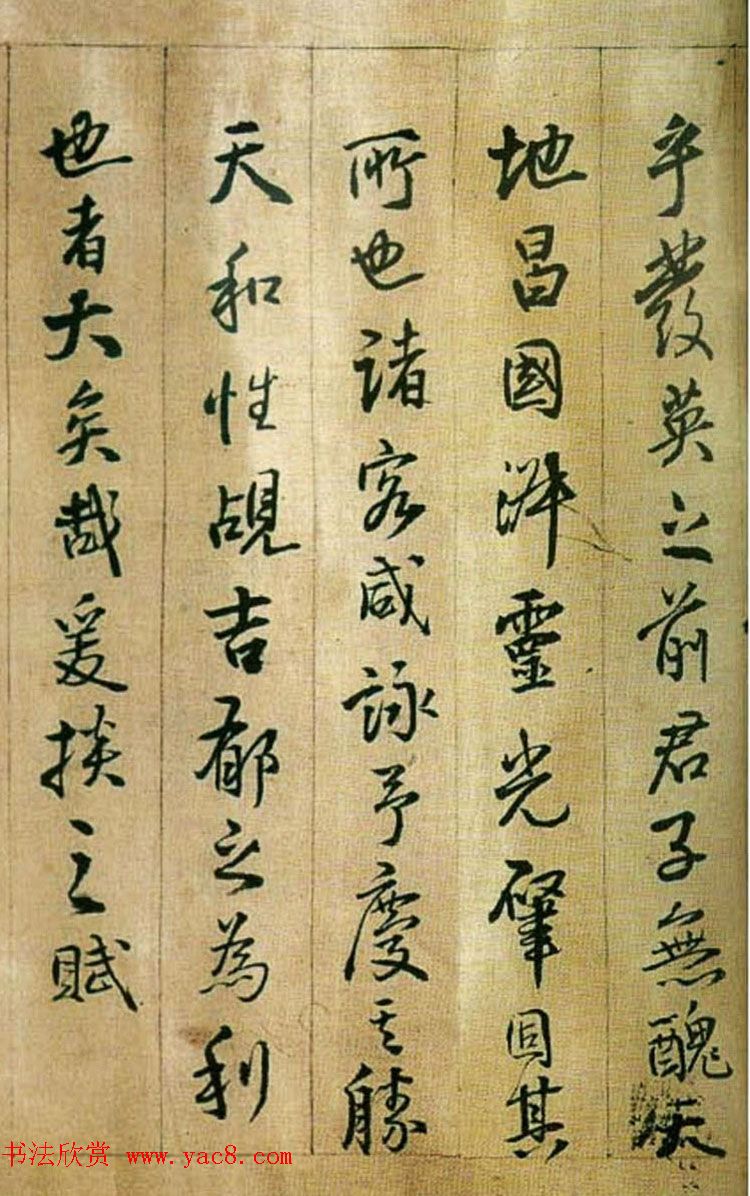 乎發英之前君子無醜
地昌國濟靈光肇固其
所也諸客咸詠予慶其勝
天和性覘吉郁之為利
也者大矣哉爰掞之賦
书法欣赏 www.yac8.com